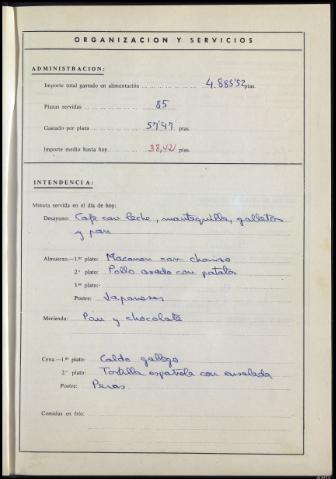 ORGANIZACION Y SERVICIOS
ADMINISTRACION:
Importe total gastado en alimentación 4.885'52 ptas.
Plazas servidas 85
Gastado por plaza 57'47 ptas.
Importe medio hasta hoy 38,42 ptas.
INTENDENCIA:
Minuta servida en el día de hoy:
Desayuno: Cafe con leche, mantequilla, galletas
y pan
Almuerzo—1.er plato: Macarron con chorizo
2.º plato: Pollo asado con patatas
3.er plato:
Postre: Japonesas
Merienda: Pan y chocolate
Cena—1.er plato: Caldo gallego
2.º plato: Tortilla española con ensalada
Postre: Peras
Comidas en frío: